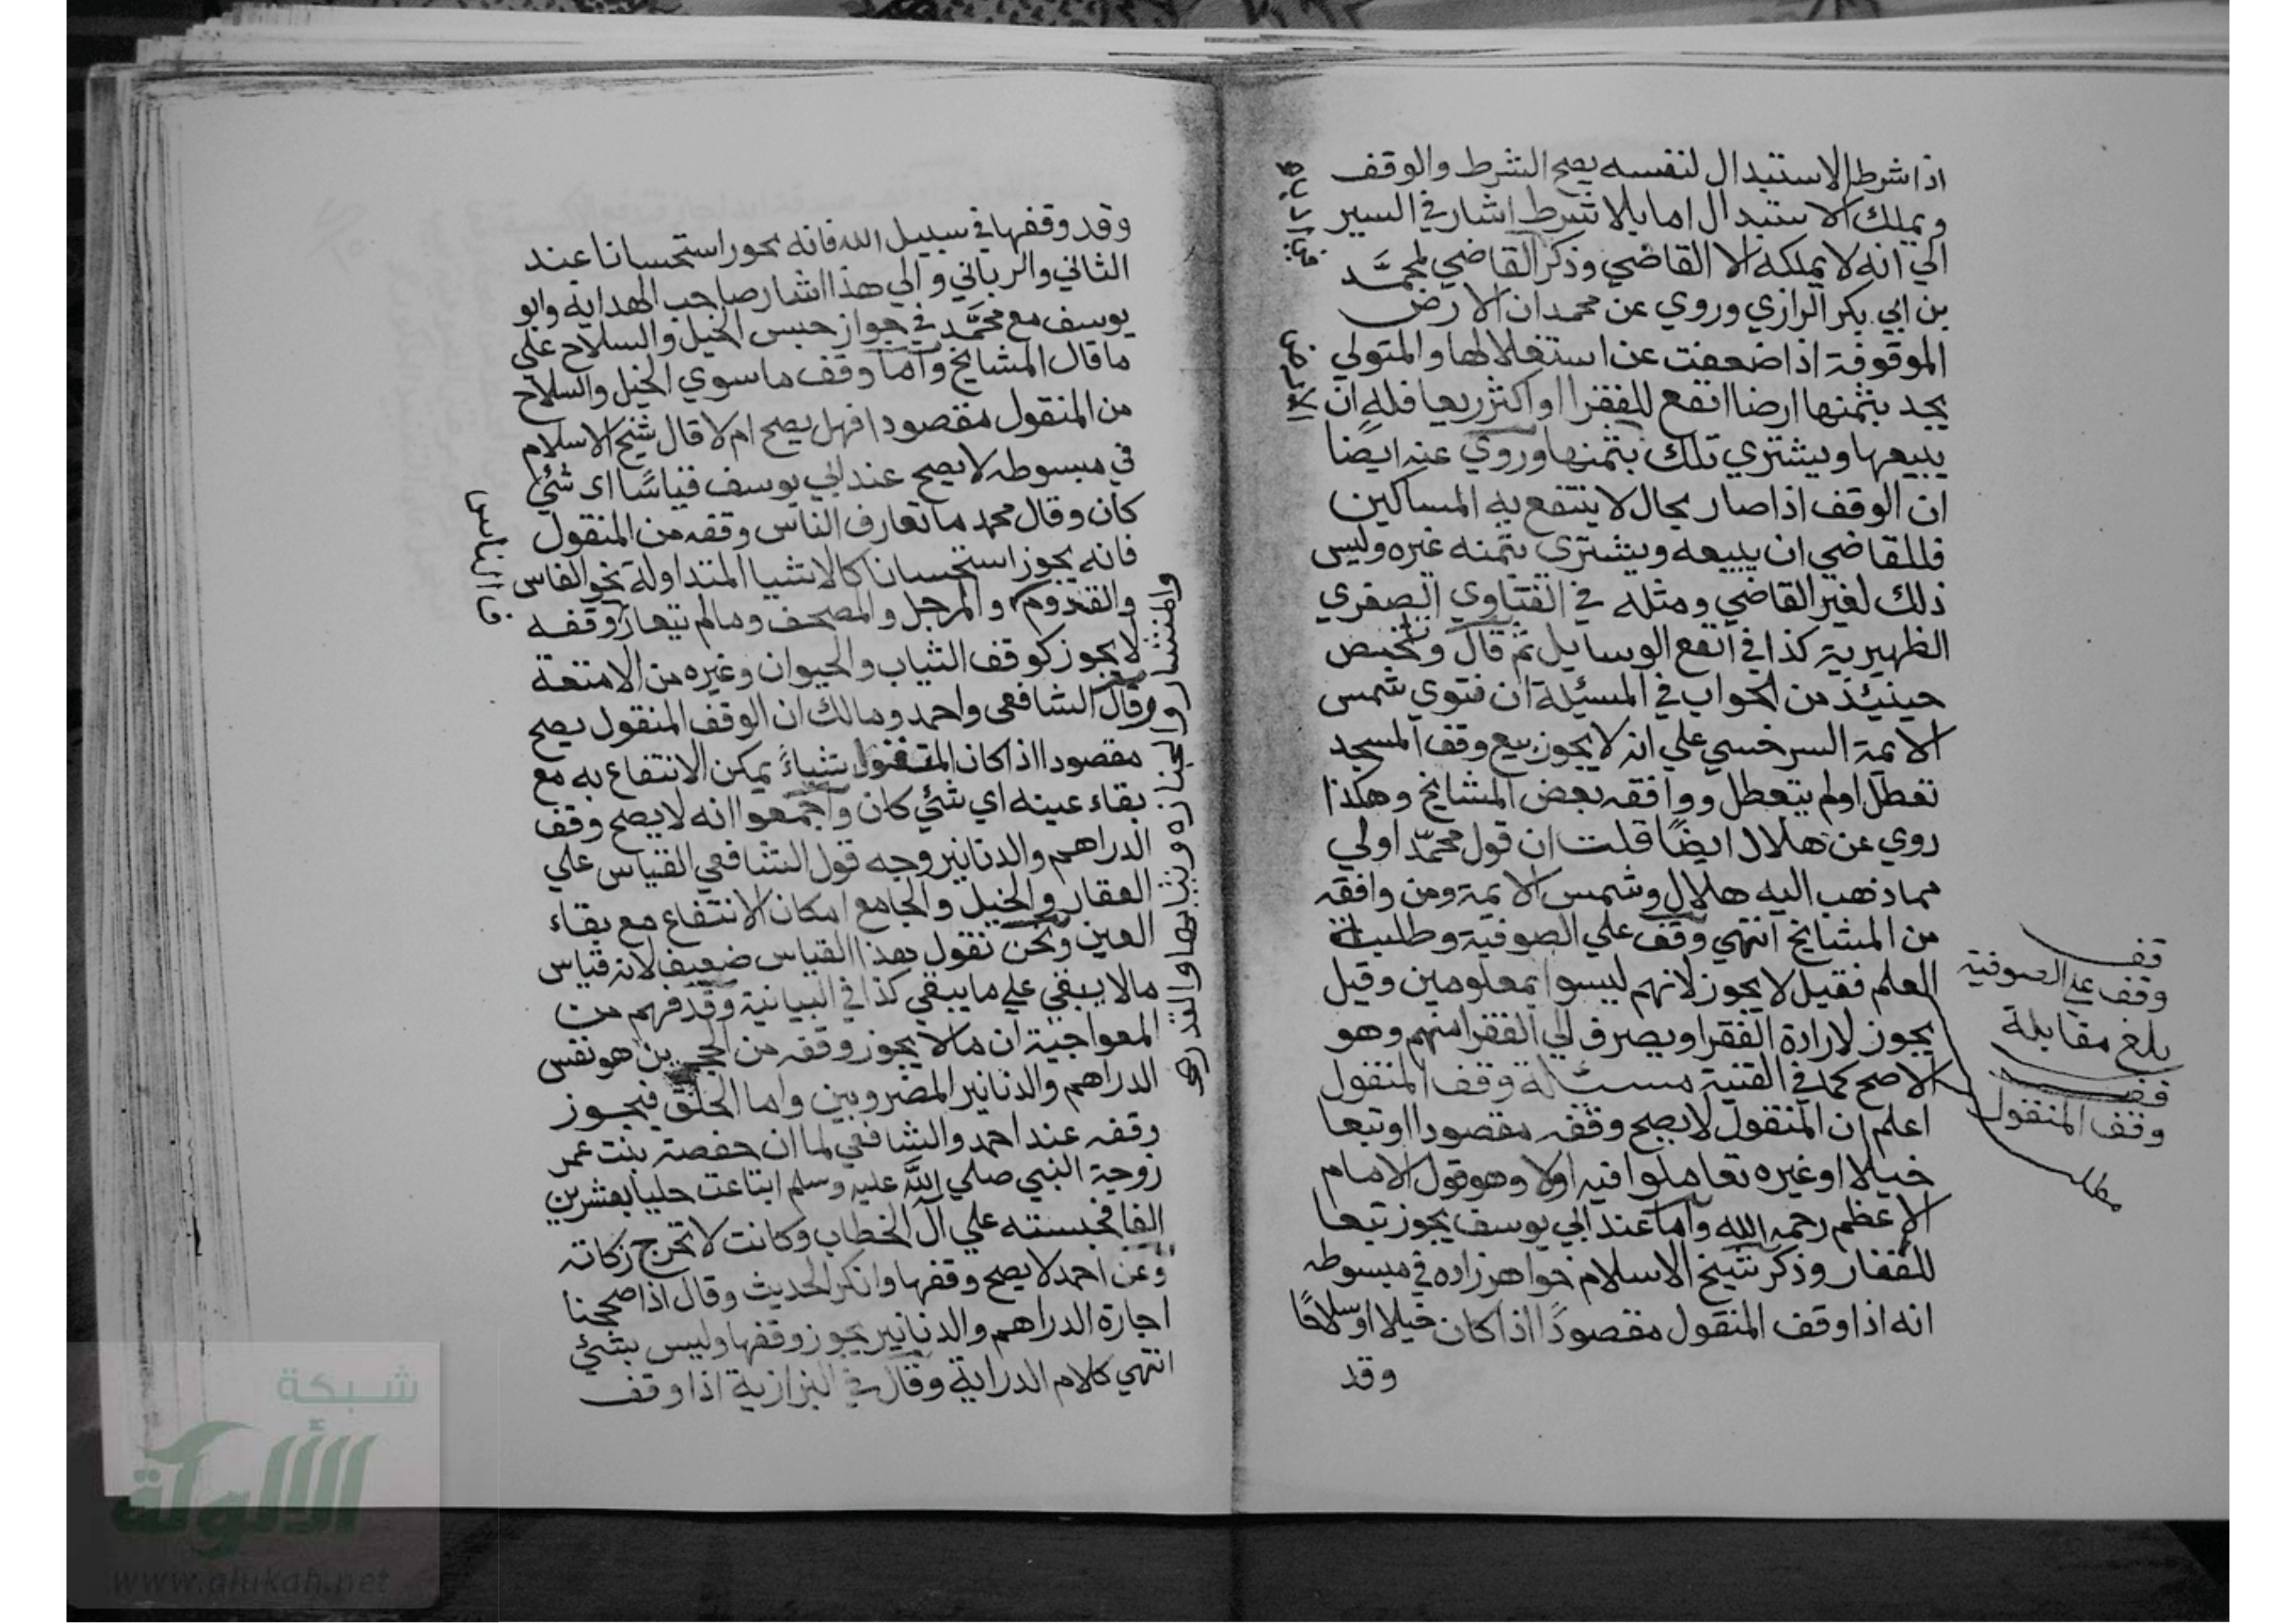 اذا شرط الاستبدال لنفسه يصح الشرط والوقف
ويملك الاستبدال اما بلا شرط اشار في السير
الي انه لا يملكه الا القاضي وذكر القاضي لمحمَّد
بن ابي بكر الرازي وروي عن محمد ان الارض
الموقوفة اذا ضعفت عن استغلالها والمتولي
يجد بثمنها ارضا انفع للفقرا او اكثر ريعا فله ان
يبيعها ويشتري تلك بثمنها وروي عنه ايضا
ان الوقف اذا صار بحال لا ينتفع به المساكين
فللقاضي ان يبيعه ويشتري بثمنه غيره وليس
ذلك لغير القاضي ومثله في الفتاوي الصغري
الظهيرية كذا في انفع الوسايل ثم قال
حينيئذ من الجواب في المسيئلة ان فتوي شمس
الايمة السرخسي علي انه لا يجوز بيع وقف المسجد
تعطل اولم يتعطل ووافقه بعض المشايخ وهكذا
روي عن هلال ايضًا قلت ان قول محمّد اولي
مما ذهب اليه هلال وشمس الايمة ومن وافقه
من المشايخ انتهي وقف علي الصوفية وطلبة
العلم فقيل لا يجوز لانهم ليسوا بمعلومين وقيل
يجوز لارادة الفقرا ويصرف الي الفقرا منهم وهو
الاصح كما في القنية مسئلة وقف المنقول
اعلم ان المنقول لا يصح وقفه مقصودا او تبعا
خيلا او غيره تعاملوا فيه اولا وهو قول الامام
الاعظم رحمه الله واما عند ابي يوسف يجوز تبعا
للعقار وذكر شيخ الاسلام خواهرزاده في مبسوطه
انه اذا وقف المنقول مقصودًا اذا كان خيلا او سلاحًا
وقد
قف
وقف علي الصوفية
بلغ مقابلة
قف
وقف المنقول
مطلب
وقد وقفها في سبيل الله فانه يجوز استحسانا عند
الثاني والرباني والي هذا اشار صاحب الهداية وابو
يوسف مع محمَّد في جواز حبس الخيل والسلاح علي
ما قال المشايخ واما وقف ما سوي الخيل والسلاح
من المنقول مقصودا فهل يصح ام لا قال شيخ الاسلام
في مبسوطه لا يصح عند ابي يوسف قياسًا اي شئي
كان وقال محمد ما تعارف الناس وقفه من المنقول
فانه يجوز استحسانا كالاشيا المتداولة نحو الفاس
والقدوم والمرجل والمصحف وما لم يتعارف وقفه
لا يجوز كوقف الثياب والحيوان وغيره من الامتعة
وقال الشافعي واحمد ومالك ان الوقف المنقول يصح
مقصودا اذا كان المنقول شياءً يمكن الانتفاع به مع
بقاء عينه اي شئي كان واجمعوا انه لا يصح وقف
الدراهم والدنانير وجه قول الشافعي القياس علي
العقار والخيل والجامع امكان الانتفاع مع بقاء
العين ونحن نقول بهذا القياس ضعيف لانه قياس
مالا يبقي علي ما يبقي كذا في البيانية وقد فهم من
المعواجية ان مالا يجوز وقفه من الحجرين هو نفس
الدراهم والدنانير المضروبين واما الحلق فيجوز
وقفه عند احمد والشافعي لما ان حفصة بنت عمر
زوجة النبي صلي الله عليه وسلم ابتاعت حليا بعشرين
الفا فحبسته علي آل الخطاب وكانت لا تخرج زكاته
وعن احمد لا يصح وقفها وانكر الحديث وقال اذا صححنا
اجارة الدراهم والدنانير يجوز وقفها وليس بشئي
انتهي كلام الدراية وقال في البزازية اذا وقف
والمنشار والجنازه وثيابها والقدر صح
شبكة
الألوكة
www.alukah.net